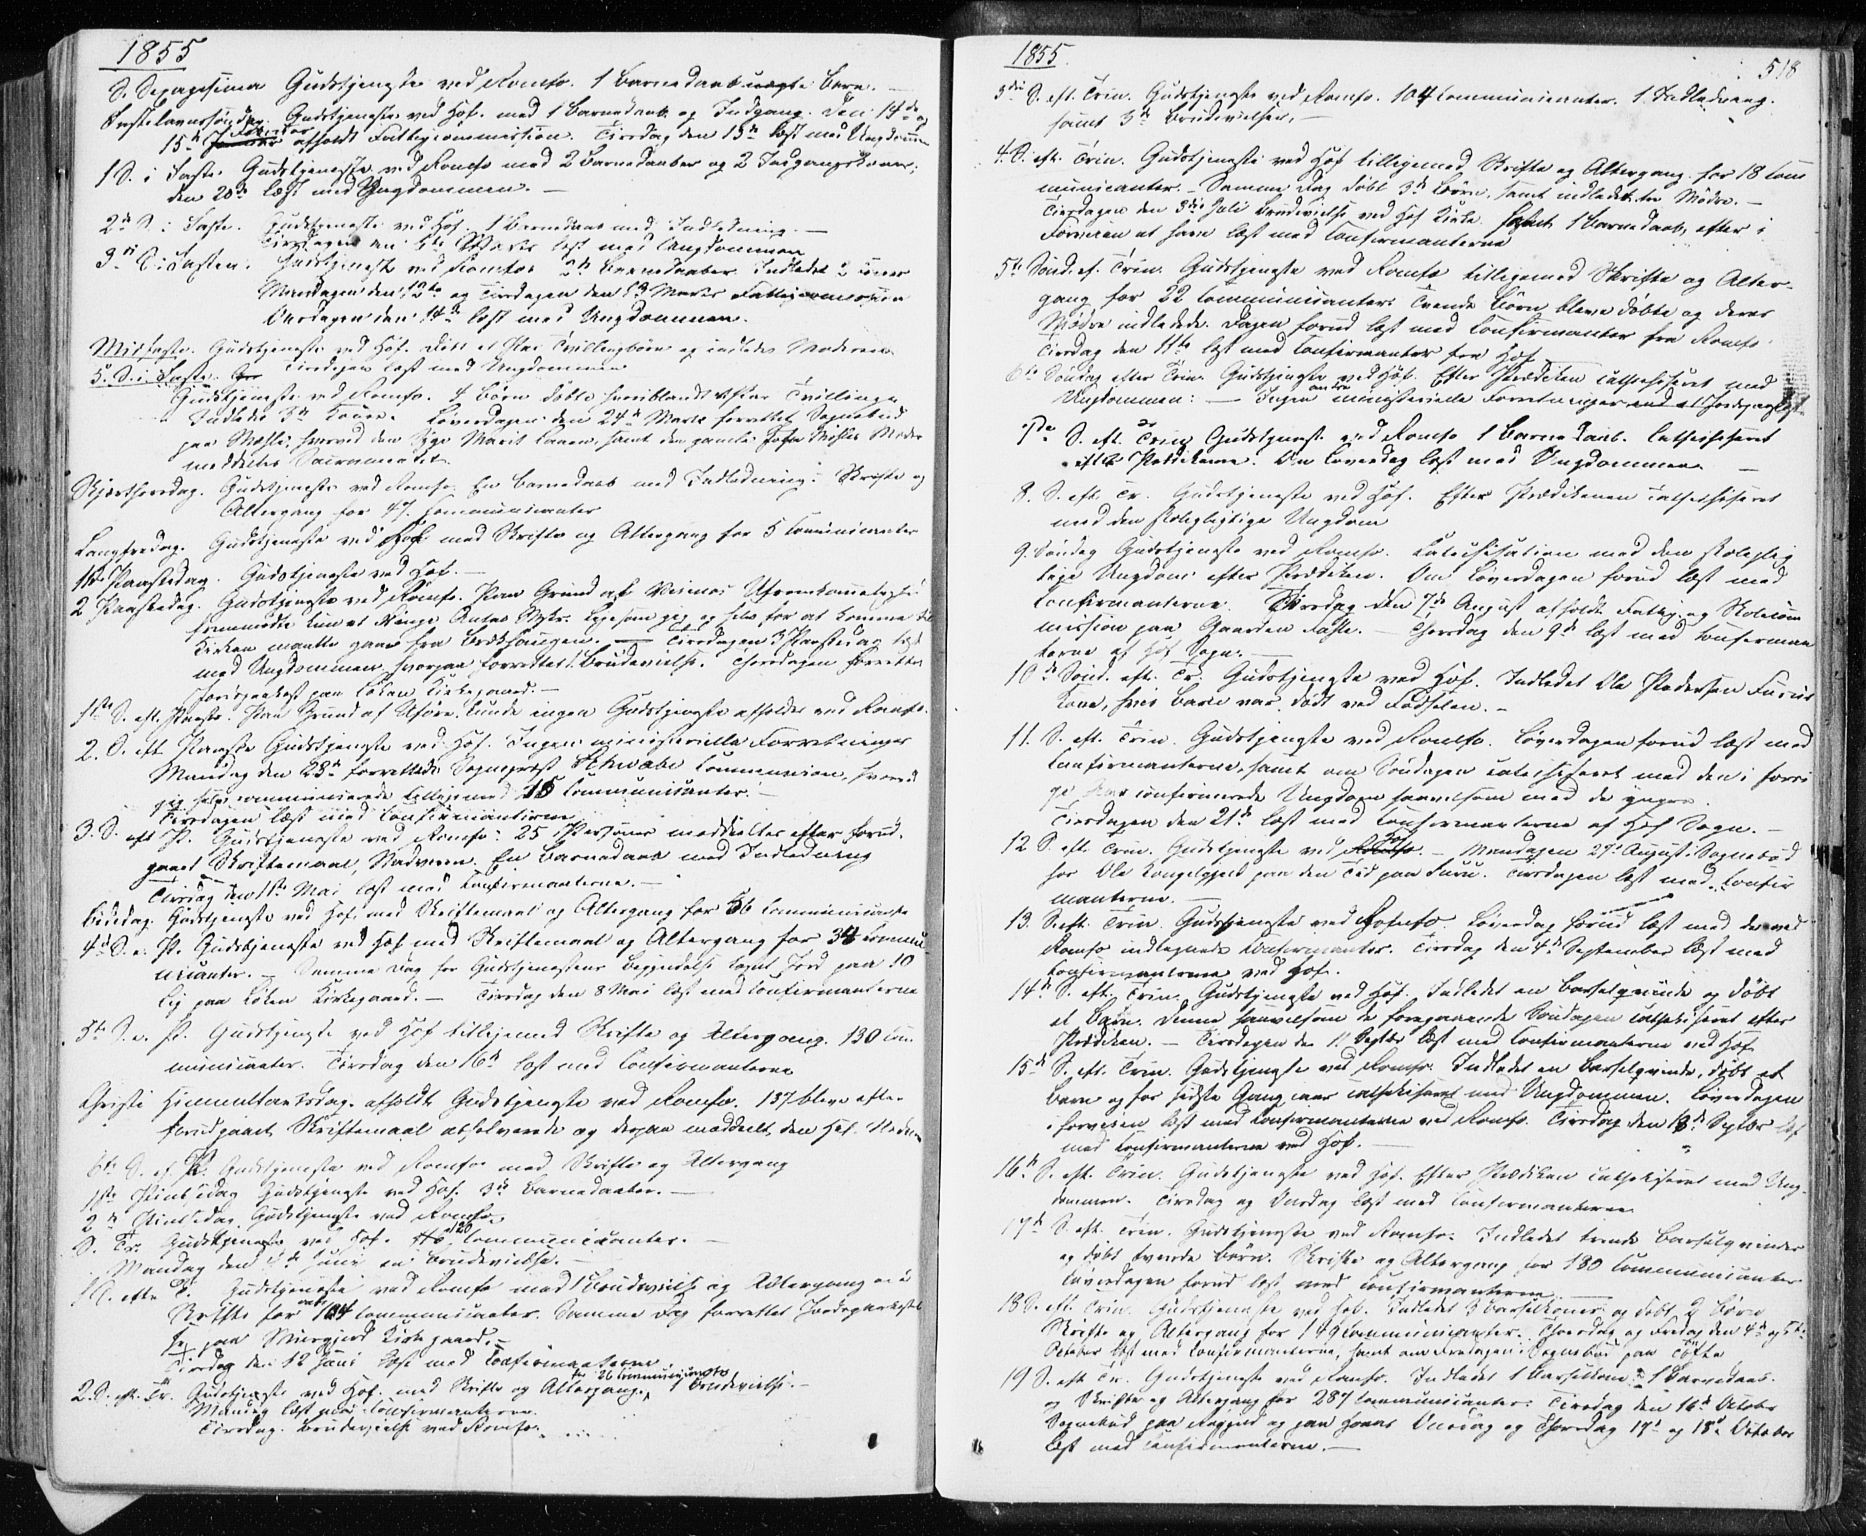 1855
S. Sexagesima Gudstjeneste ved Romfo. 1 Barnedaab uægte Barn. —
Fastelavnssøndag. Gudstjeneste ved Hof. med 1 Barnedaab og Indgang. Den 14de og
15de Februar afholdt Fattigcommission. Tirsdag den 13de læst med Ungdommen
1 S. i Faste. Gudstjeneste ved Romfo med 2 Barnedaaber og 2 Indgangskoner;
den 20de læst med Ungdommen. —
2de S. i Faste. Gudstjeneste ved Hof. 1 Barnedaab med Indledning. —
Tirsdagen den 6te Marts læst med Ungdommen
3die S. i Fasten. Gudstjeneste ved Romfoe 2de Barnedaaber. Indledet 2 Koner
Mandagen den 12te og Tirsdagen den 13 Marts Fattigcommission
Onsdagen den 14de læst med Ungdommen.
Midfaste. Gudstjeneste ved Hof. Døbt et Par Tvillingbørn og indledet Moderen
5. S. i Faste. Tirsdagen læst med Ungdommen
Gudstjeneste ved Romfo. 4 Børn døbte hvoriblandt Tvillinger
Indledet 3de Koner. Løverdagen den 24de Marts forrettet Sognebud
paa Mæhle, hvorved den Syge Marit Larsen, samt den gamle Moder
meddeltes Sacramentet.
Skjærthorsdag. Gudstjeneste ved Romfo. En Barnedaab med Indledning. Skrifte og
Altergang for 47 Communicanter
Langfredag. Gudstjeneste ved Hof med Skrifte og Altergang for 5 Communicanter
1ste Paaskedag. Gudstjeneste ved Hof. —
2 Paaskedag. Gudstjeneste ved Romfo. Paa Grund af Veienes Ufremkommelighed
fremmødte kun et Mange ligesom jeg og selv for at komme til
Kirken maatte gaae fra Brækhaugen. — Tirsdagen 3 Paaskedag læst
med Ungdommen, hvorpaa forrettet 1 Brudevielse. Thorsdagen forrettet
Jordpaakast paa Løken Kirkegaard. —
1ste S. eft. Paaske. Paa Grund af Uføre kunde ingen Gudstjeneste afholdes ved Romfo.
2. S. eft. Paaske Gudstjeneste ved Hof. Ingen ministerielle Forretninger
Mandag den 23de forrettede Sognepræst Schwabe Communion, hvorved
jeg selv communicerede tilligemed 15 Communicanter. —
Tirsdagen læst med Confirmanterne
3. S. eft P. Gudstjeneste ved Romfo: 25 Personer meddeeltes efter forud-
gaaet Skriftemaal, Nadveren. En Barnedaab med Indledning
Tirsdag den 1ste Mai læst med Confirmanterne. —
Bededag. Gudstjeneste ved Hof. med Skriftemaal og Altergang for 56 Communicanter
4de S. e. P. Gudstjeneste ved Hof med Skriftemaal og Altergang for 34 Commu-
nicanter. — Samme Dag før Gudstjenestens Begyndelse kastet Jord paa 10
Lig paa Løken Kirkegaard. — Tirsdag den 8 Mai læst med Confirmanterne
5te S. e. P. Gudstjeneste ved Hof tilligemed Skrifte og Altergang. 130 Com-
municanter. Tirsdag den 16de læst med Confirmanterne
Christi Himmelfartsdag. afholdt Gudstjeneste ved Romfo. 137 bleve efter
forudgaaet Skriftemaal absolverede og derpaa meddeelt den Hel. Nadver
6te S. ef. P. Gudstjeneste ved Romfo med Skrifte og Altergang
1ste Pintsedag Gudstjeneste ved Hof. 3de Barnedaaber. —
2den Pintsedag. Gudstjeneste ved Romfo.
S. Tr. Gudstjeneste ved Hof. 120 Communicanter. —
Mandag den 4de Juni en Brudevielse. —
1 S. efter Tr. Gudstjeneste ved Romfo med 1 Brudevielse og Altergang
Skrifte for 104 Communicanter. Samme Dag forrettet Jordpaakastelse
paa Musgjerd Kirkegaard. —
Tirsdag den 12 Juni læst med Confirmanterne
2. S. eft. Tr. Gudstjeneste ved Hof. med Skrifte og Altergang for 26 Communicanter, 1 Brudevielse. —
Mandag læst med Confirmanterne
Tirsdag. Brudevielse ved Romfo.
1855.
518
3die S. eft. Trin. Gudstjeneste ved Romfo. 104 Communicanter. 1 Indledning.
samt 3de Brudevielser. —
4. S. eft. Trin. Gudstjeneste ved Hof tilligemed Skrifte og Altergang for 18 Com-
municanter. — Samme Dag døbt 3de Børn, samt indledet tre Mødre. —
Tirsdagen den 3die Juli Brudevielse ved Hof Kirke. samt 1 Barnedaab, efter i
Forveien at have læst med Confirmanterne
5te Sønd. ef. Trin. Gudstjeneste ved Romfo tilligemed Skrifte og Alter-
gang for 22 Communicanter. Tvende Børn bleve døbte og deres
Mødre indledede. Dagen forud læst med Confirmanter fra Romfo.
Tirsdag den 11te læst med Confirmanter fra Hof.
6te Søndag efter Trin. Gudstjeneste ved Hof. Efter Prædiken catechiseret med
Ungdommen: — Ingen andre ministerielle Forretninger end et Jordpaakast.
7de S. eft. Trin. Gudstjeneste ved Romfo 1 Barnedaab. Catechiseret
efter Prædikene. Om Løverdag læst med Ungdommen. —
8. S. eft. Tr. Gudstjeneste ved Hof. Efter Prædikenen catechiseret
med den skolepligtige Ungdom
9. Søndag Gudstjeneste ved Romfo. Catechisation med den skoleplig-
tige Ungdom efter Prædiken. Om Løverdagen forud læst med
Confirmanterne. Tirsdag den 7de August afholdt Fattig og Skolecom-
mission paa Gaarden Fahle. — Thorsdag den 9de læst med Confirman-
terne af Hof Sogn. —
10de Sønd. eft. Tr. Gudstjeneste ved Hof. Indledet Ole Pedersen Furus
Kone, hvis Barn var dødt ved Fødselen. —
11. S. eft. Trin. Gudstjeneste ved Romfo. Løverdagen forud læst med
Confirmanterne, samt om Søndagen catechiseret med den i forri-
ge Aar confirmerede Ungdom saavelsom med de yngre.
Tirsdagen den 21de læst med Confirmanterne af Hof Sogn. —
12 S. eft. Trin. Gudstjeneste ved Hof. — Mandagen 27de August Sognebud
hos Ole paa den Tid paa Furu. Tirsdagen læst med Confir-
manterne. —
13. S. eft. Trin. Gudstjeneste ved Romfo. Løverdag forud læst med de ved
Romfo indtegnede Confirmanter. Tirsdag den 4de September læst med
Confirmanterne ved Hof.
14de S. eft. Trin. Gudstjeneste ved Hof. Indledet en Barselqvinde og døbt
et Barn. Denne saavelsom de foregaaende Søndagen catechiseret efter
Prædiken. — Tirsdagen den 11 Septbr læst med Confirmanterne ved Hof.
15de S. eft. Trin. Gudstjeneste ved Romfo. Indledet en Barselqvinde, døbt et
Barn og for sidste Gang iaar catechiseret med Ungdommen. Løverdagen
i Forveien læst med Confirmanterne ved Romfo. Tirsdag den 18de Septbr læst
med Confirmanterne ved Hof. —
16de S. eft. Trin. Gudstjeneste ved Hof. Efter Prædiken catechiseret med Ung-
dommen. Tirsdag og Onsdag læst med Confirmanterne
17de S. eft. Trin. Gudstjeneste ved Romfo. Indledet trende Barselqvinder
og døbt tvende Børn. Skrifte og Altergang for 180 Communicanter
Løverdagen forud læst med Confirmanterne
18 S. eft. Trin. Gudstjeneste ved Hof. Indledet 3 Barselkoner og døbt 2 Børn
Skrifte og Altergang for 149 Communicanter. Thorsdag og Fredag den 4de og 5te
October læst med Confirmanterne, samt om Fredagen i Sognebud paa Tofte
19 S. eft. Tr. Gudstjeneste ved Romfo. Indledet 1 Barselkone 1 Barnedaab
og Skrifte og Altergang for 287 Communicanter. Tirsdag den 16de October
Sognebud paa og paa Onsdag og Thorsdag 17de og 18de October
læst med Confirmanterne. —